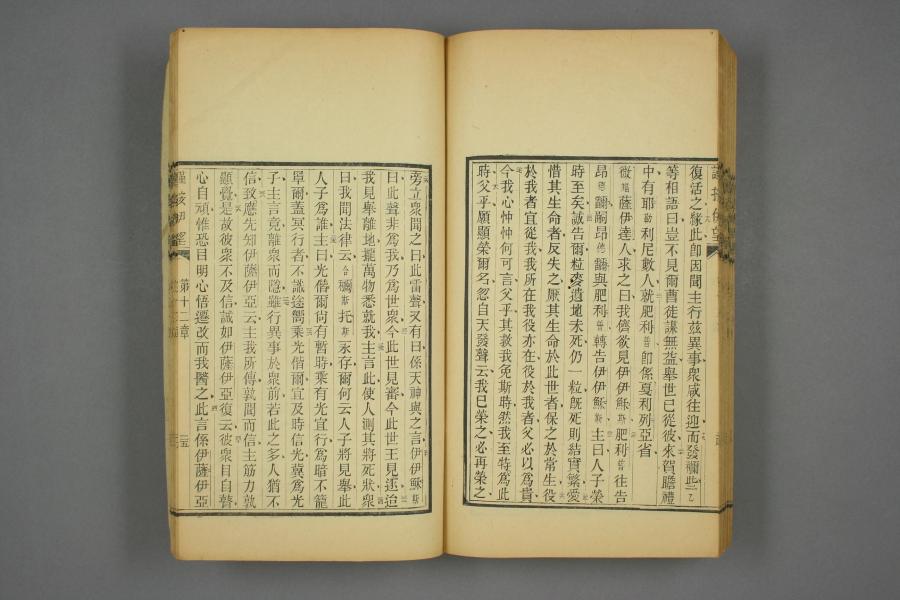 復活之緣此卽因聞主行茲異事衆咸往迎而發
等相語曰豈不見爾曹徒謀無益舉世已從彼來賀瞻禮
中有耶利尼數人就肥利卽係戛利列亞省
薩伊達人求之曰我儕欲見伊伊穌斯肥利往告
昂嗣昂與肥利轉告伊伊穌斯主曰人子榮
時至矣誠告爾粒麥遺地未死仍一粒旣死則結實繁愛
惜其生命者反失之厭其生命於此世者保之於常生役
於我者宜從我我所在我役亦在役於我者父必以爲貴
今我心忡忡何可言父乎其救我免斯時然我至特爲此
時父乎願顯榮爾名忽自天發聲云我已榮之必再榮之
旁立衆聞之曰此雷聲又有曰係天神與之言伊伊穌斯
曰此聲非爲我乃爲世衆今此世見審今此世王見逐迨
我見舉離地擢萬物悉就我主言此使人測其將死狀衆
曰我聞法律云合爾斯托斯永存爾何云人子將見舉此
人子爲誰主曰光偕爾尙有暫時乘有光宜行爲暗不籠
罩爾蓋冥行者不識途嚮乘光偕爾宜及時信光冀爲光
子主言竟離衆而隱雖行異事於衆前若此之多人猶不
信致應先知伊薩伊亞云主我所傳孰聞而信主筋力孰
顯覺是故彼衆不及信誠如伊薩伊亞復云彼衆目自瞽
心自頑惟恐目明心悟遷改而我醫之此言係伊薩伊亞
第十二章